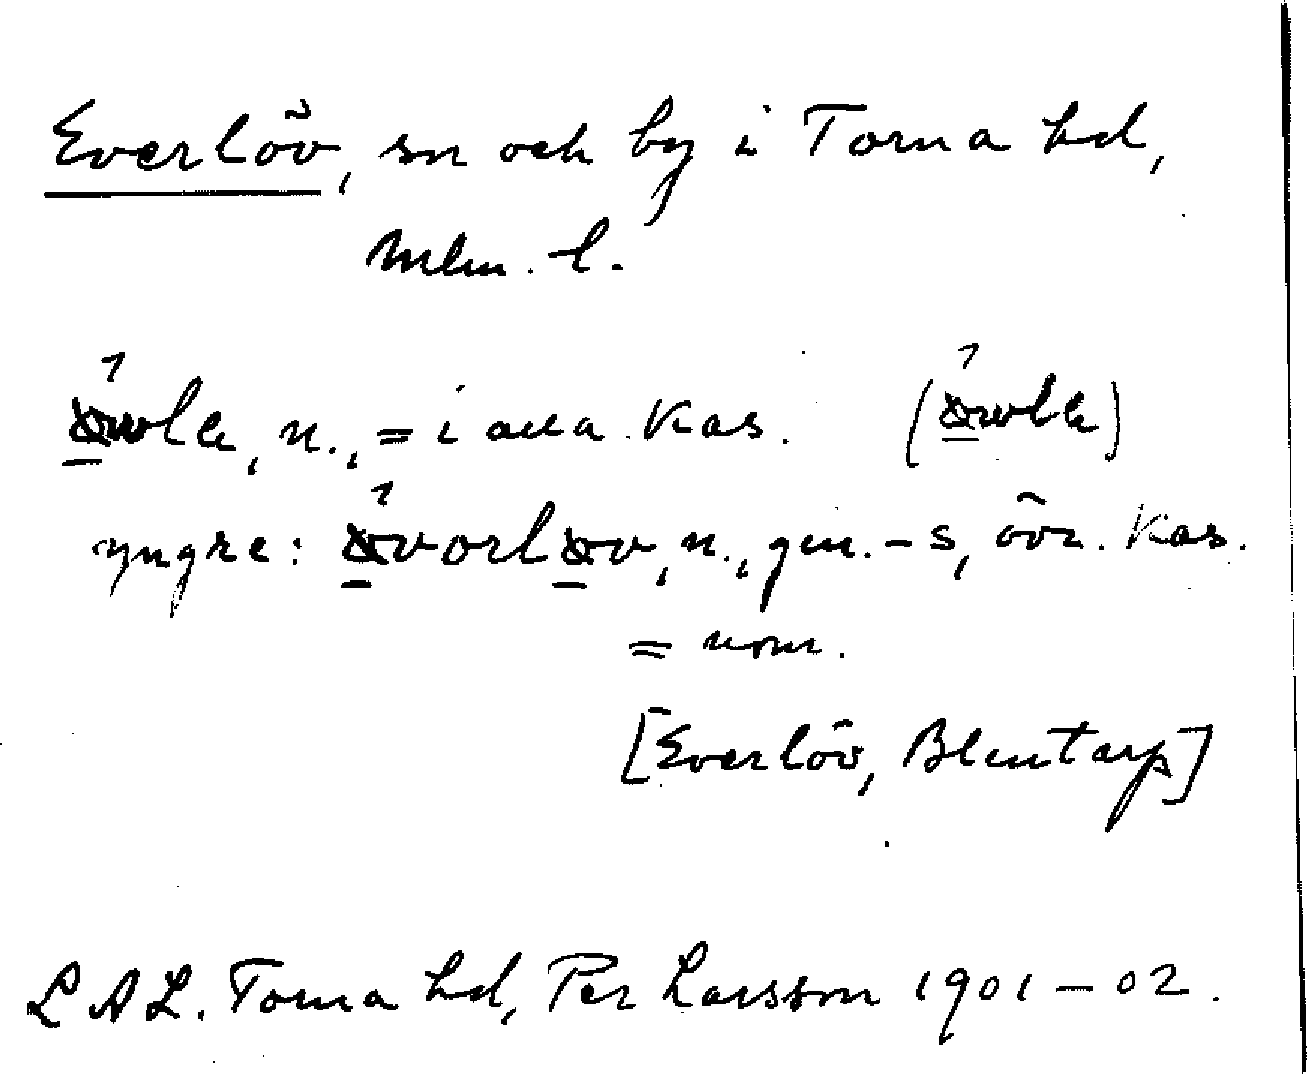 Everlöv, sn och by i Torna hd,
Mlm. l.
n., = i alla kas.
yngre: n., gen. -s, övr. kas.
= nom.
[Everlöv, Blentarp]
LAL. Torna hd, Per Larsson 1901-02.